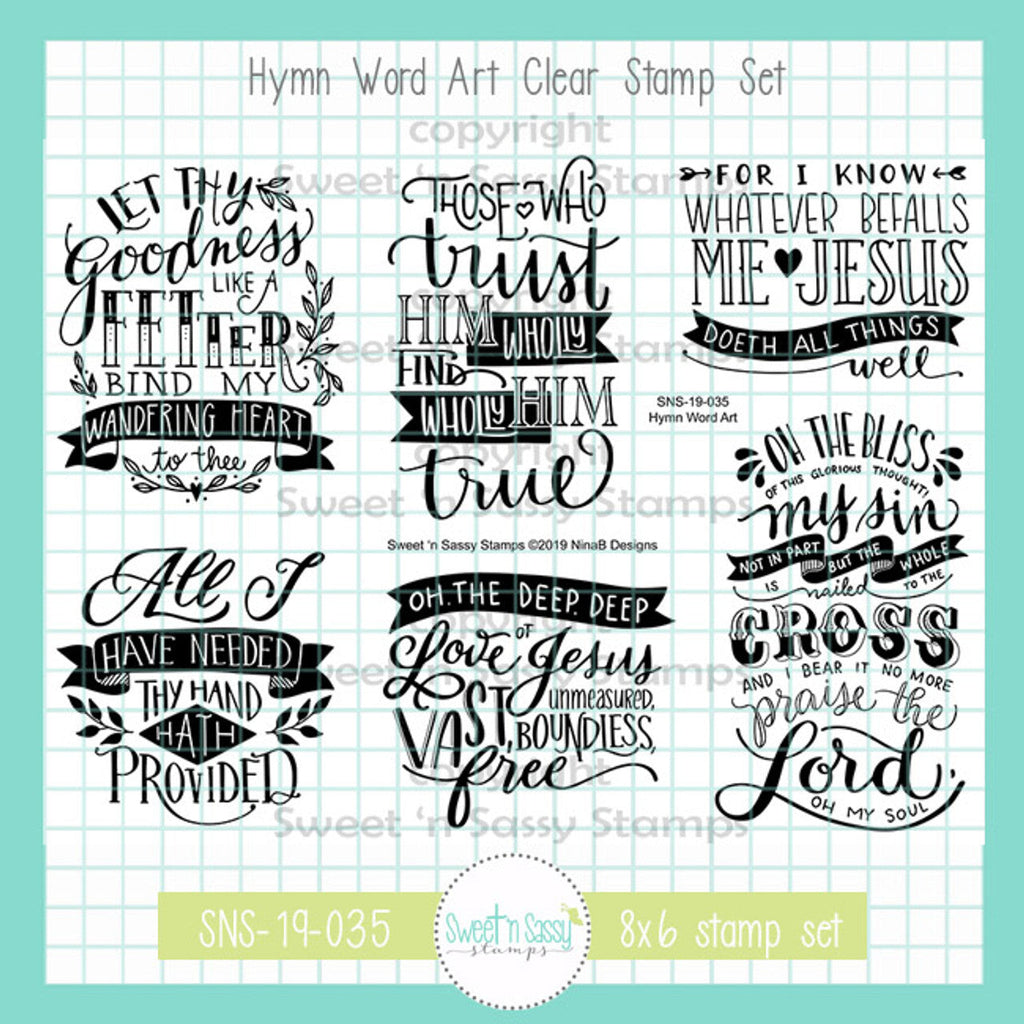 Hymn Word Art Clear Stamp Set
copyright
Sweet 'n Sassy Stamps
LET THY
Goodness
LIKE A
FETTER
BIND MY
WANDERING HEART
to thee
THOSE WHO
trust
HIM
WHOLLY
FIND
WHOLLY HIM
true
FOR I KNOW
WHATEVER BEFALLS
ME JESUS
DOETH ALL THINGS
well
SNS-19-035
Hymn Word Art
copyright
Sweet 'n Sassy Stamps
copyright
Sweet 'n Sassy Stamps
Sweet 'n Sassy Stamps ©2019 NinaB Designs
All I
HAVE NEEDED
THY HAND
HATH
PROVIDED
OH, THE DEEP, DEEP
Love OF Jesus
unmeasured,
VAST, BOUNDLESS,
free
OH THE BLISS
OF THIS GLORIOUS THOUGHT!
my sin
NOT IN PART BUT THE WHOLE
IS nailed TO THE
CROSS
AND I BEAR IT NO MORE
praise the
Lord,
OH MY SOUL
copyright
Sweet 'n Sassy Stamps
copyright
Sweet 'n Sassy Stamps
SNS-19-035
Sweet 'n Sassy
stamps
8x6 stamp set